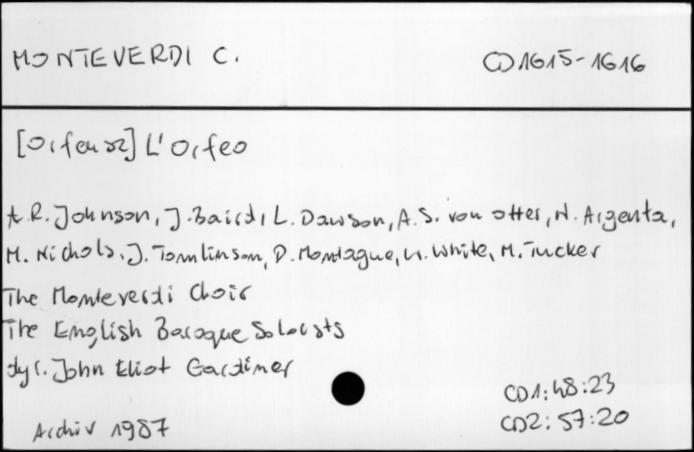 MONTEVERDI C.
CD1615-1616
[Orfeusz] L'Orfeo
A.R. Johnson, J. Baird, L. Dawson, A.S. von Otter, N. Argenta,
M. Nichols, J. Tomlinson, D. Montague, W. White, M. Tucker
The Monteverdi Choir
The English Baroque Soloists
dyr. John Eliot Gardiner
CD1: 48:23
CD2: 57:20
Archiv 1987